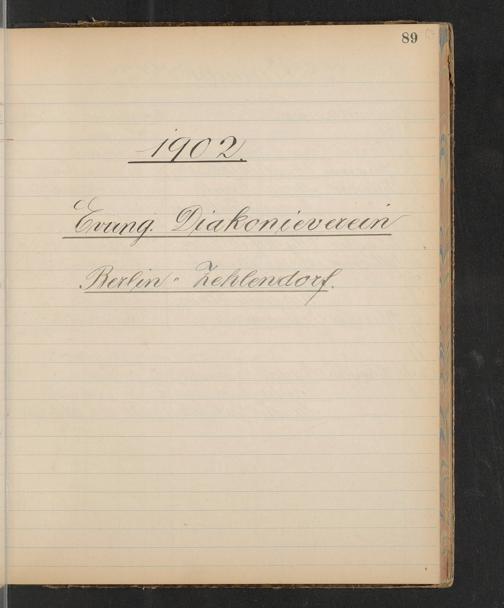 89
1902.
Evang. Diakonieverein
Berlin-Zehlendorf.